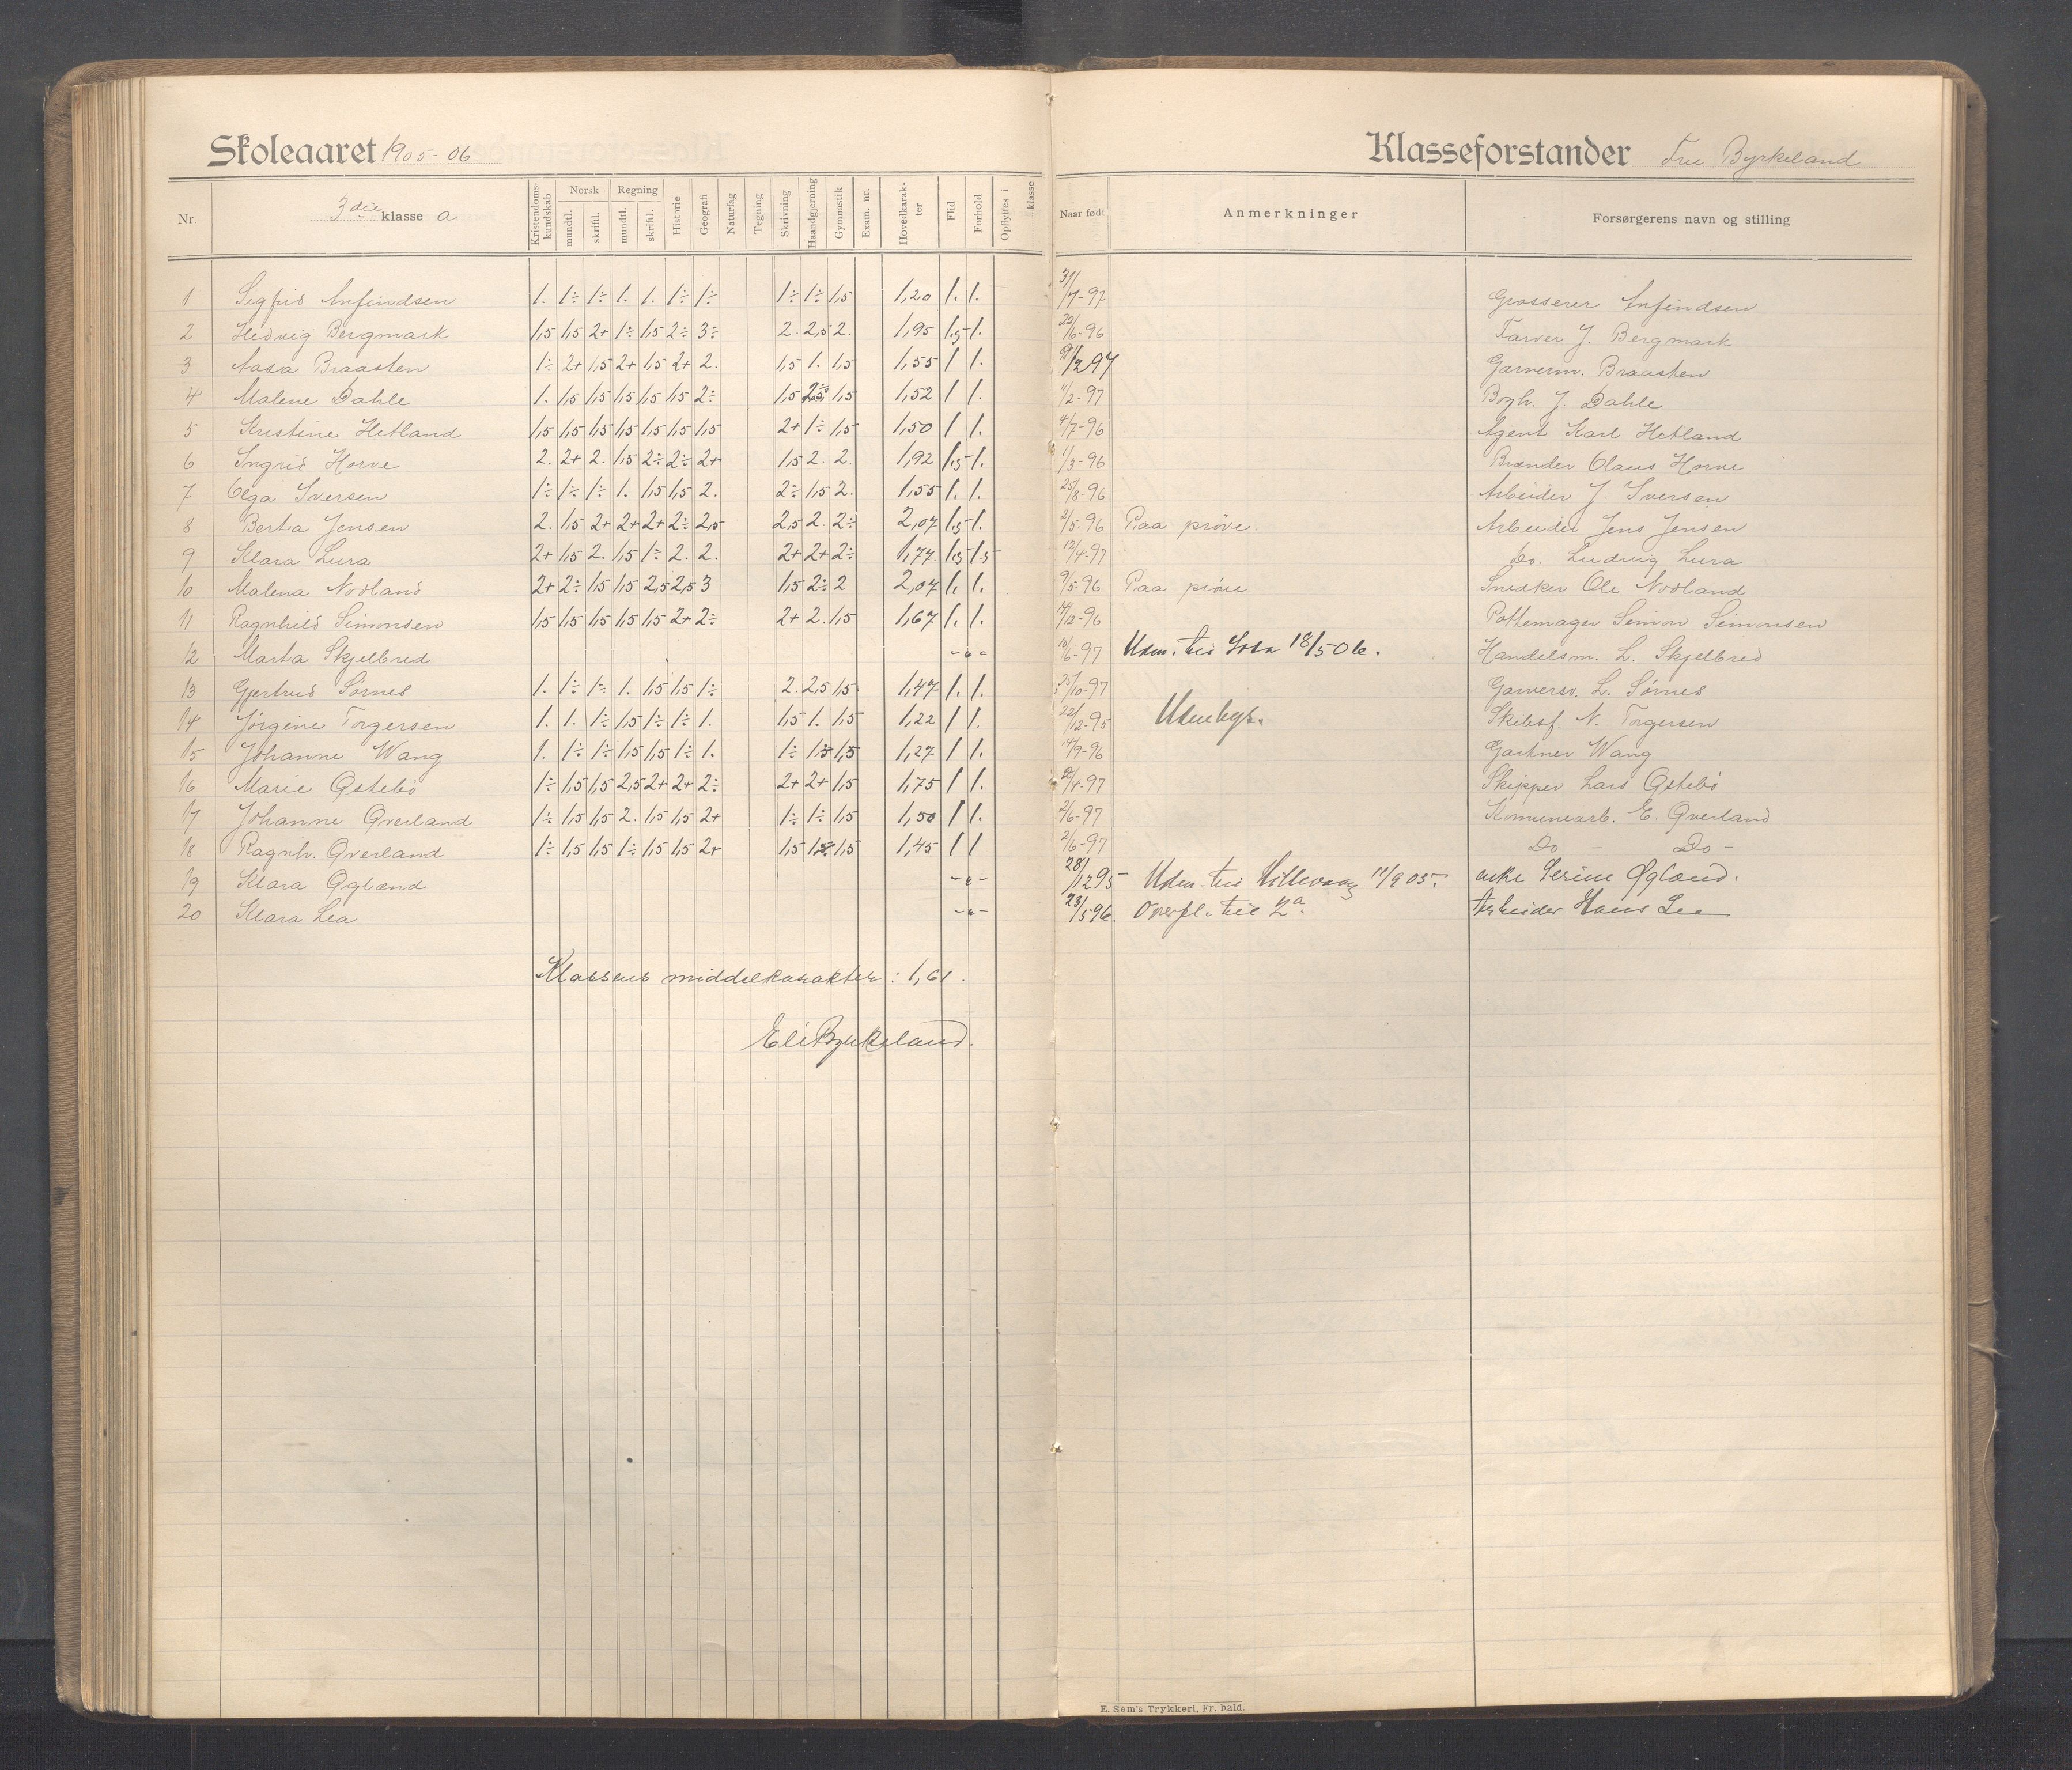 Skoleaaret 1905-06
Klasseforstander Fru Byrkeland
Nr. 3die klasse a Kristendomskundskab Norsk mundtl. skriftl. Regning mundtl. skriftl. Historie Geografi Naturfag Tegning Skrivning Haandgjerning Gymnastik Exam. nr. Hovedkarakter Flid Forhold Opflyttes i klasse Naar født Anmerkninger Forsørgerens navn og stilling
1 Sigfrid Anfindsen 1. 1÷ 1÷ 1. 1. 1÷ 1÷ 1÷ 1÷ 1,5 1,20 1. 1. 31/7-97 Grosserer Anfindsen
2 Hedvig Bergmark 1,5 1,5 2+ 1÷ 1,5 2÷ 3÷ 2. 2,5 2. 1,95 1,5 1. 22/6-96 Farver J. Bergmark
3 Aasa Braasten 1÷ 2+ 1,5 2+ 1,5 2+ 2. 1,5 1. 1,5 1,55 1 1. /2 97 Garverm. Braasten
4 Malene Dahle 1. 1,5 1,5 1,5 1,5 1,5 2÷ 1,5 1,5 1,52 1 1. 11/2-97 Bogh. J. Dahle
5 Kristine Hetland 1,5 1,5 1,5 1,5 1,5 1,5 1,5 2+ 1÷ 1,5 1,50 1 1. 4/7-96 Agent Karl Hetland
6 Ingrid Horve 2. 2+ 2. 1,5 2÷ 2÷ 2+ 1,5 2. 2. 1,92 1,5 1. 1/3-96 Brænder Olaus Horve
7 Olga Iversen 1÷ 1÷ 1÷ 1. 1,5 1,5 2. 2÷ 1,5 2. 1,55 1. 1. 25/8-96 Arbeider J. Iversen
8 Berta Jensen 2. 1,5 2+ 2+ 2+ 2÷ 2,5 2,5 2. 2÷ 2,07 1,5 1. 2/5-96 Paa prøve. Arbeider Jens Jensen
9 Klara Lura 2+ 1,5 2. 1,5 1÷ 2. 2. 2+ 2+ 2÷ 1,77 1,5 1,5 12/4-97 Do. Ludvig Lura
10 Malena Nodland 2+ 2÷ 1,5 1,5 2,5 2,5 3 1,5 2÷ 2 2,07 1. 1. 9/5-96 Paa prøve Snedker Ole Nodland
11 Ragnhild Simonsen 1,5 1,5 1,5 1,5 1,5 2+ 2÷ 2+ 2. 1,5 1,67 1. 1. 17/12-96 Pottemager Simon Simonsen
12 Marta Skjelbred -"- 10/6-97 Udm. til 18/5 06. Handelsm. L. Skjelbred
13 Gjertrud Sørnes 1. 1÷ 1÷ 1. 1,5 1,5 1÷ 2. 2,5 1,5 1,47 1. 1. 25/10-97 Garversv. L. Sørnes
14 Jørgine Torgersen 1. 1. 1÷ 1,5 1÷ 1÷ 1. 1,5 1. 1,5 1,22 1 1. 22/12-95 Udenbys. Skibsf. N. Torgersen
15 Johanne Wang 1. 1÷ 1÷ 1,5 1,5 1÷ 1. 1÷ 1,5 1,5 1,27 1 1. 14/9-96 Gartner Wang
16 Marie Østebø 1÷ 1,5 1,5 2,5 2+ 2+ 2÷ 2+ 2+ 1,5 1,75 1 1. /4-97 Skipper Lars Østebø
17 Johanne Øverland 1÷ 1,5 1,5 2. 1,5 1,5 2+ 1÷ 1÷ 1,5 1,50 1 1. 2/6-97 Komunearb. E. Øverland
18 Ragnh. Øverland 1÷ 1,5 1,5 1÷ 1,5 1,5 2+ 1,5 1,5 1,45 1 1 2/6-97 Do - Do -
19 Klara Øglænd -"- 28/12 95 Udm. til Hillevaag 11/9 05. enke Serine Øglænd.
20 Klara Lea -"- 23/5 96. Overfl. til 2a. Arbeider Hans Lea
Klassens middelkarakter: 1,61.
Eli Byrkeland.
E. Sem's Trykkeri, Fr. hald.